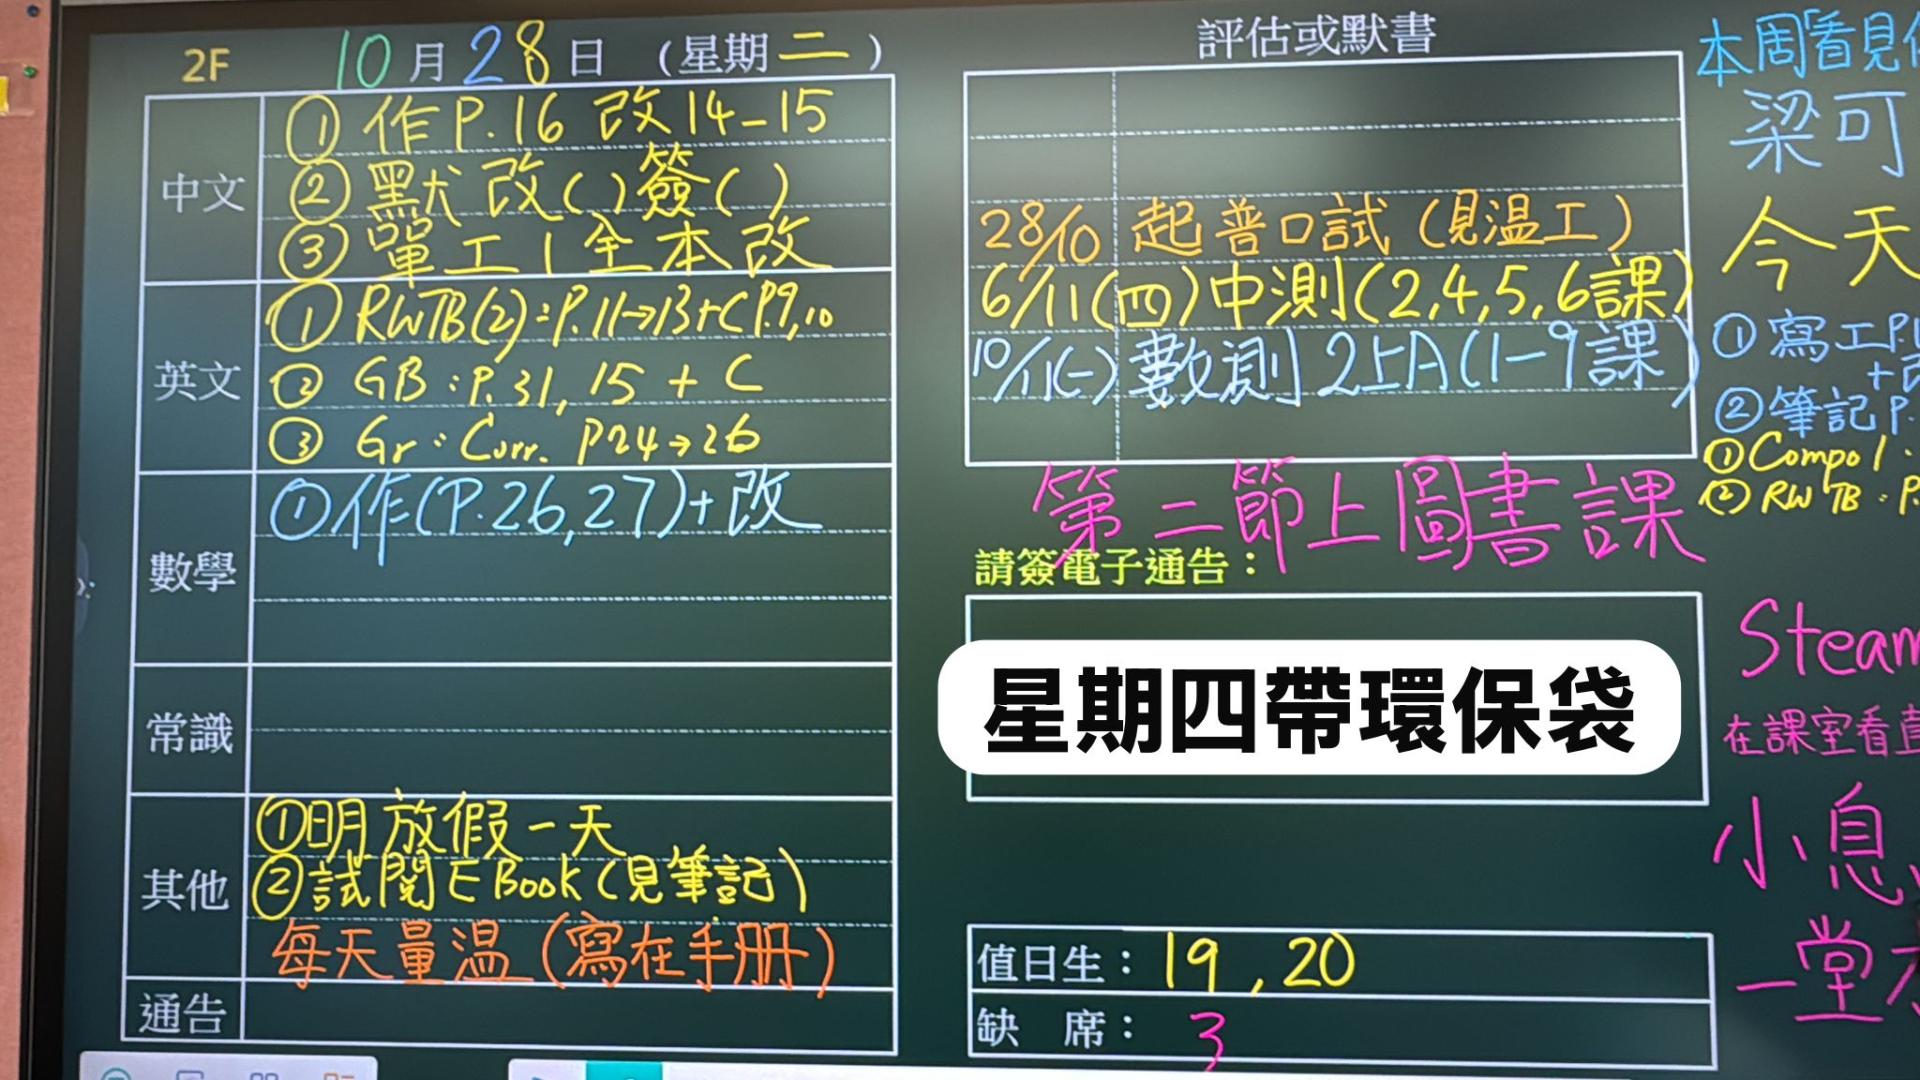 2F 10月28日（星期二）
中文
① 作P.16 改14-15
② 默改( )簽( )
③ 單工1全本改
英文
① RWTB(2):P.11→13+C P.9,10
② GB:P.31,15 + C
③ Gr:Corr. P24→26
數學
①作(P.26,27)+改
常識
其他
①明放假一天
②試閱E Book(見筆記)
每天量温(寫在手册)
通告
評估或默書
28/10 起普口試(見温工)
6/11(四)中測(2,4,5,6課)
10/11(一)數測2上A(1-9課)
第二節上圖書課
請簽電子通告：
星期四帶環保袋
值日生：19,20
缺 席：3
本周「看見
梁可
今天
①寫工P.
+改
②筆記P.
①Compo 1
②RWTB:P.
Steam
在課室看直
小息
一堂